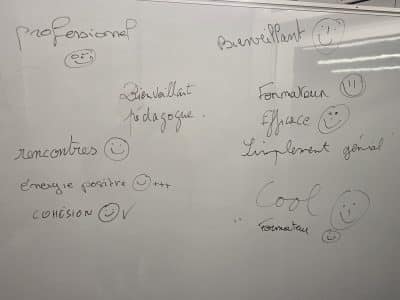 professionel
Bienveillant
Bienvaillant
pédagogue.
Formateur
Efficace
Simplement génial
rencontres
énergie positive +++
COHÉSION
Cool
Formateur